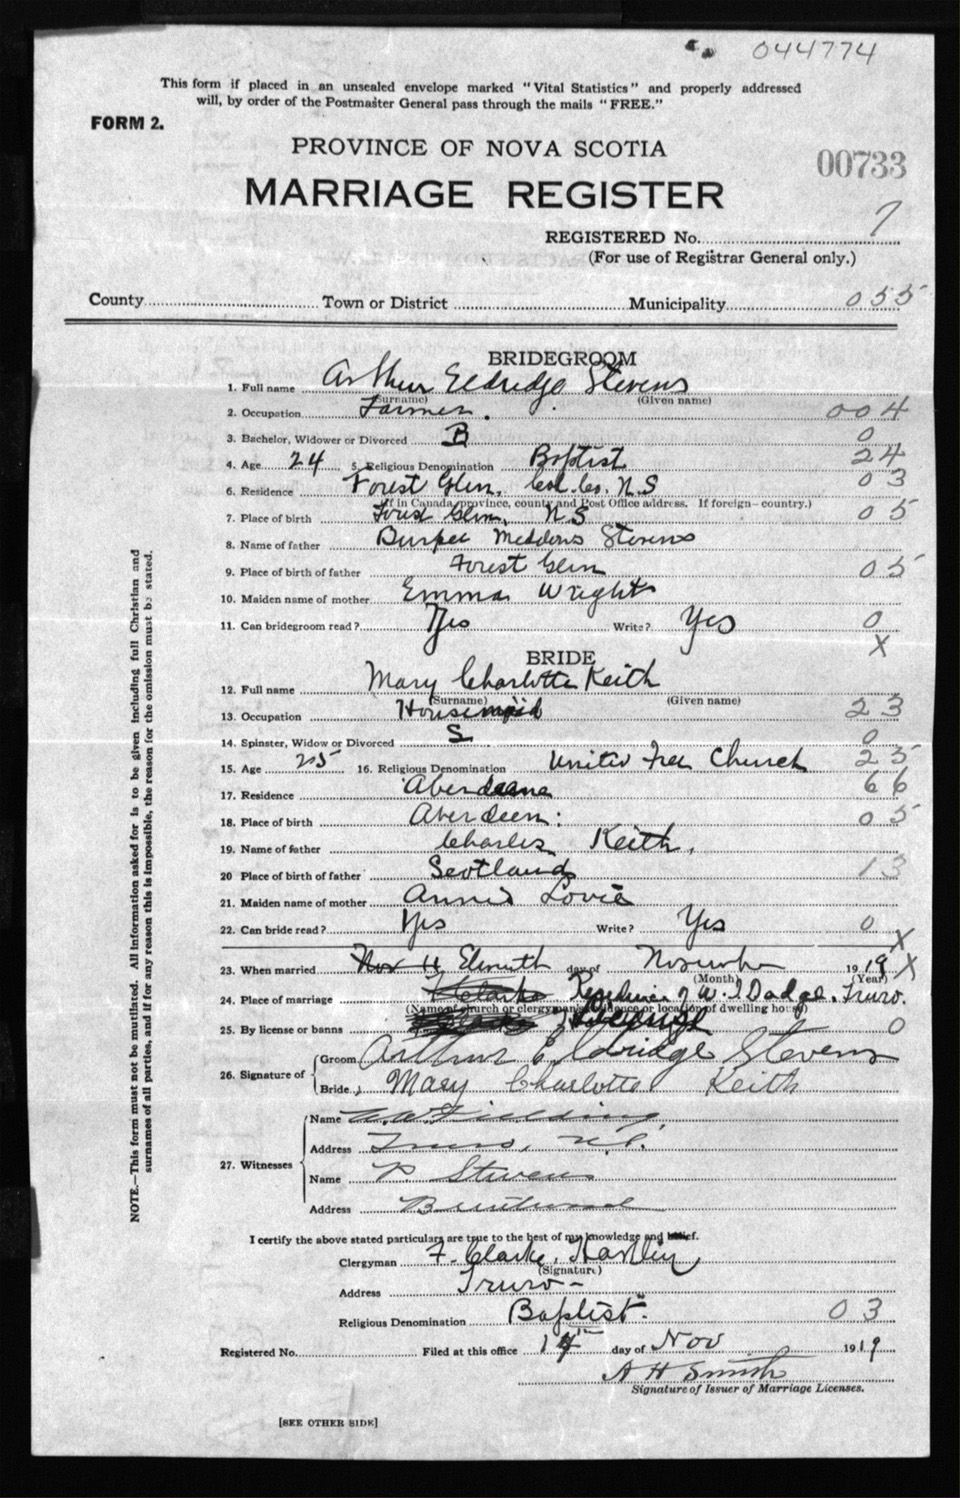 044774
This form if placed in an unsealed envelope marked "Vital Statistics" and properly addressed
will, by order of the Postmaster General pass through the mails "FREE."
FORM 2.
PROVINCE OF NOVA SCOTIA
00733
MARRIAGE REGISTER
7
REGISTERED No.
(For use of Registrar General only.)
County Town or District Municipality 055
BRIDEGROOM
1. Full name Arthur Eldridge Stevens
(Surname) (Given name)
2. Occupation Farmer. 004
3. Bachelor, Widower or Divorced B 0
4. Age 24 5. Religious Denomination Baptist 24
6. Residence Forest Glen, Col. Co. N.S 03
(If in Canada, province, county and Post Office address. If foreign—country.)
7. Place of birth Forest Glen, N S 05
8. Name of father Burpee Meddows Stevens
9. Place of birth of father Forest Glen 05
10. Maiden name of mother Emma Wright
11. Can bridegroom read? Yes Write? Yes 0
X
BRIDE
12. Full name Mary Charlotte Keith
(Surname) (Given name)
13. Occupation Housemaid 23
14. Spinster, Widow or Divorced S 0
15. Age 25 16. Religious Denomination United Free Church 25
17. Residence Aberdeen 66
18. Place of birth Aberdeen: 05
19. Name of father Charles Keith,
20 Place of birth of father Scotland 13
21. Maiden name of mother Annie Lovie
22. Can bride read? Yes Write? Yes 0
X
23. When married Nov 11 Eleventh day of November 1919 X
(Month) (Year)
24. Place of marriage Residence of W. I Dodge, Truro.
(Name of church or clergyman's residence or location of dwelling house)
25. By license or banns 0
26. Signature of Groom Arthur Eldridge Stevens
Bride Mary Charlotte Keith
27. Witnesses
Name Fielding
Address Truro, N.S.
Name P. Stevens
Address
I certify the above stated particulars are true to the best of my knowledge and belief.
Clergyman F. Clarke, Hartley
(Signature)
Address Truro -
Religious Denomination Baptist. 03
Registered No. Filed at this office 14th day of Nov 1919
A H Smith
Signature of Issuer of Marriage Licenses.
[SEE OTHER SIDE]
NOTE.—This form must not be mutilated. All information asked for is to be given including full Christian and
surnames of all parties, and if for any reason this is impossible, the reason for the omission must be stated.